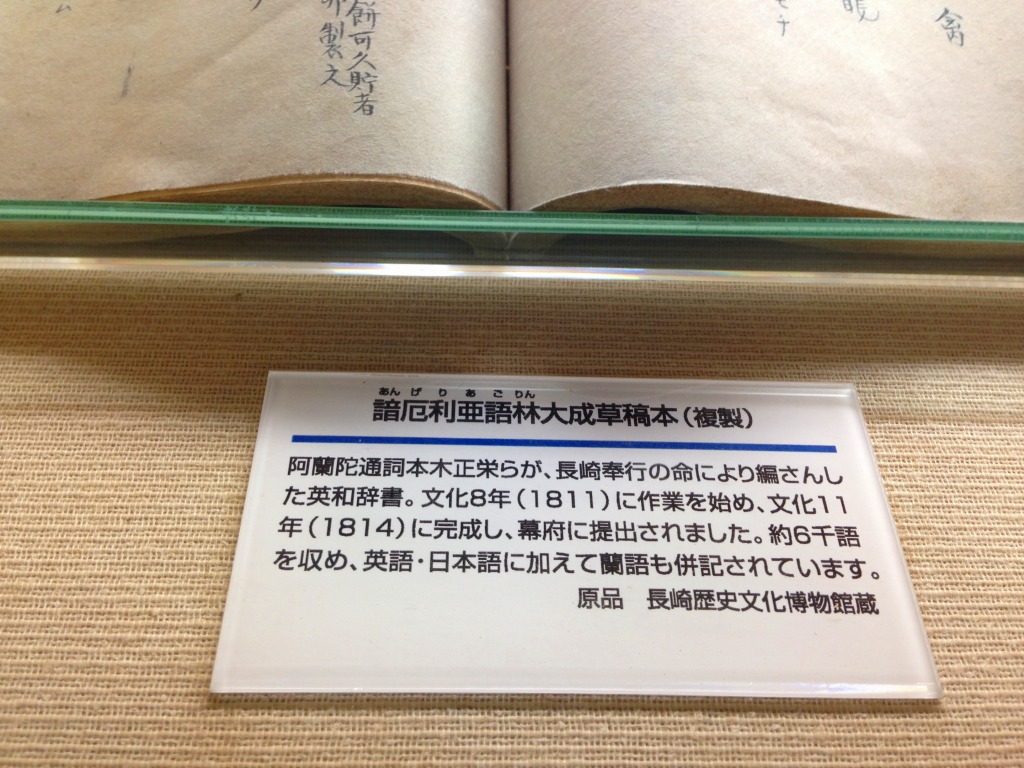 餅可久貯者
卵製之
眼
禽
あんげりあごりん
諳厄利亜語林大成草稿本（複製）
阿蘭陀通詞本木正栄らが、長崎奉行の命により編さんし
た英和辞書。文化8年（1811）に作業を始め、文化11
年（1814）に完成し、幕府に提出されました。約6千語
を収め、英語・日本語に加えて蘭語も併記されています。
原品　長崎歴史文化博物館蔵